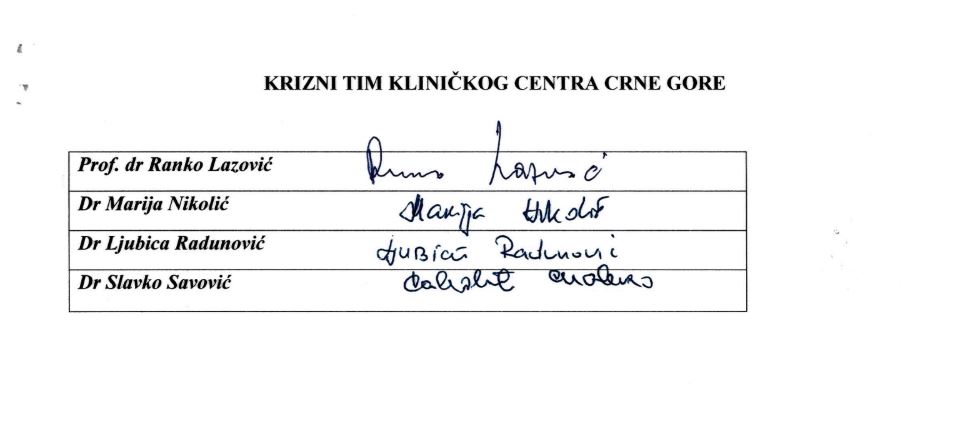 KRIZNI TIM KLINIČKOG CENTRA CRNE GORE
Prof. dr Ranko Lazović
Dr Marija Nikolić Marija
Dr Ljubica Radunović Radunović
Dr Slavko Savović